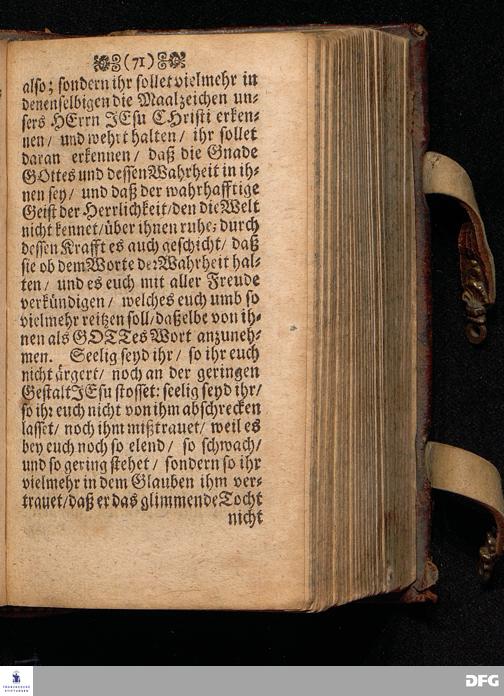 (71)
also; sondern ihr sollet vielmehr in
denenselbigen die Maalzeichen un-
sers HErrn JEsu CHristi erken-
nen/ und wehrt halten/ ihr sollet
daran erkennen/ daß die Gnade
GOttes und dessen Wahrheit in ih-
nen sey/ und daß der wahrhafftige
Geist der Herrlichkeit/den die Welt
nicht kennet/über ihnen ruhe; durch
dessen Krafft es auch geschicht/ daß
sie ob dem Worte der Wahrheit hal-
ten/ und es euch mit aller Freude
verkündigen/ welches euch umb so
vielmehr reitzen soll/daßelbe von ih-
nen als GOTTes Wort anzuneh-
men. Seelig seyd ihr/ so ihr euch
nicht ärgert/ noch an der geringen
Gestalt JEsu stosset: seelig seyd ihr/
so ihr euch nicht von ihm abschrecken
lasset/ noch ihm mißtrauet/ weil es
bey euch noch so elend/ so schwach/
und so gering stehet/ sondern so ihr
vielmehr in dem Glauben ihm ver-
trauet/daß er das glimmende Tocht
nicht
DFG